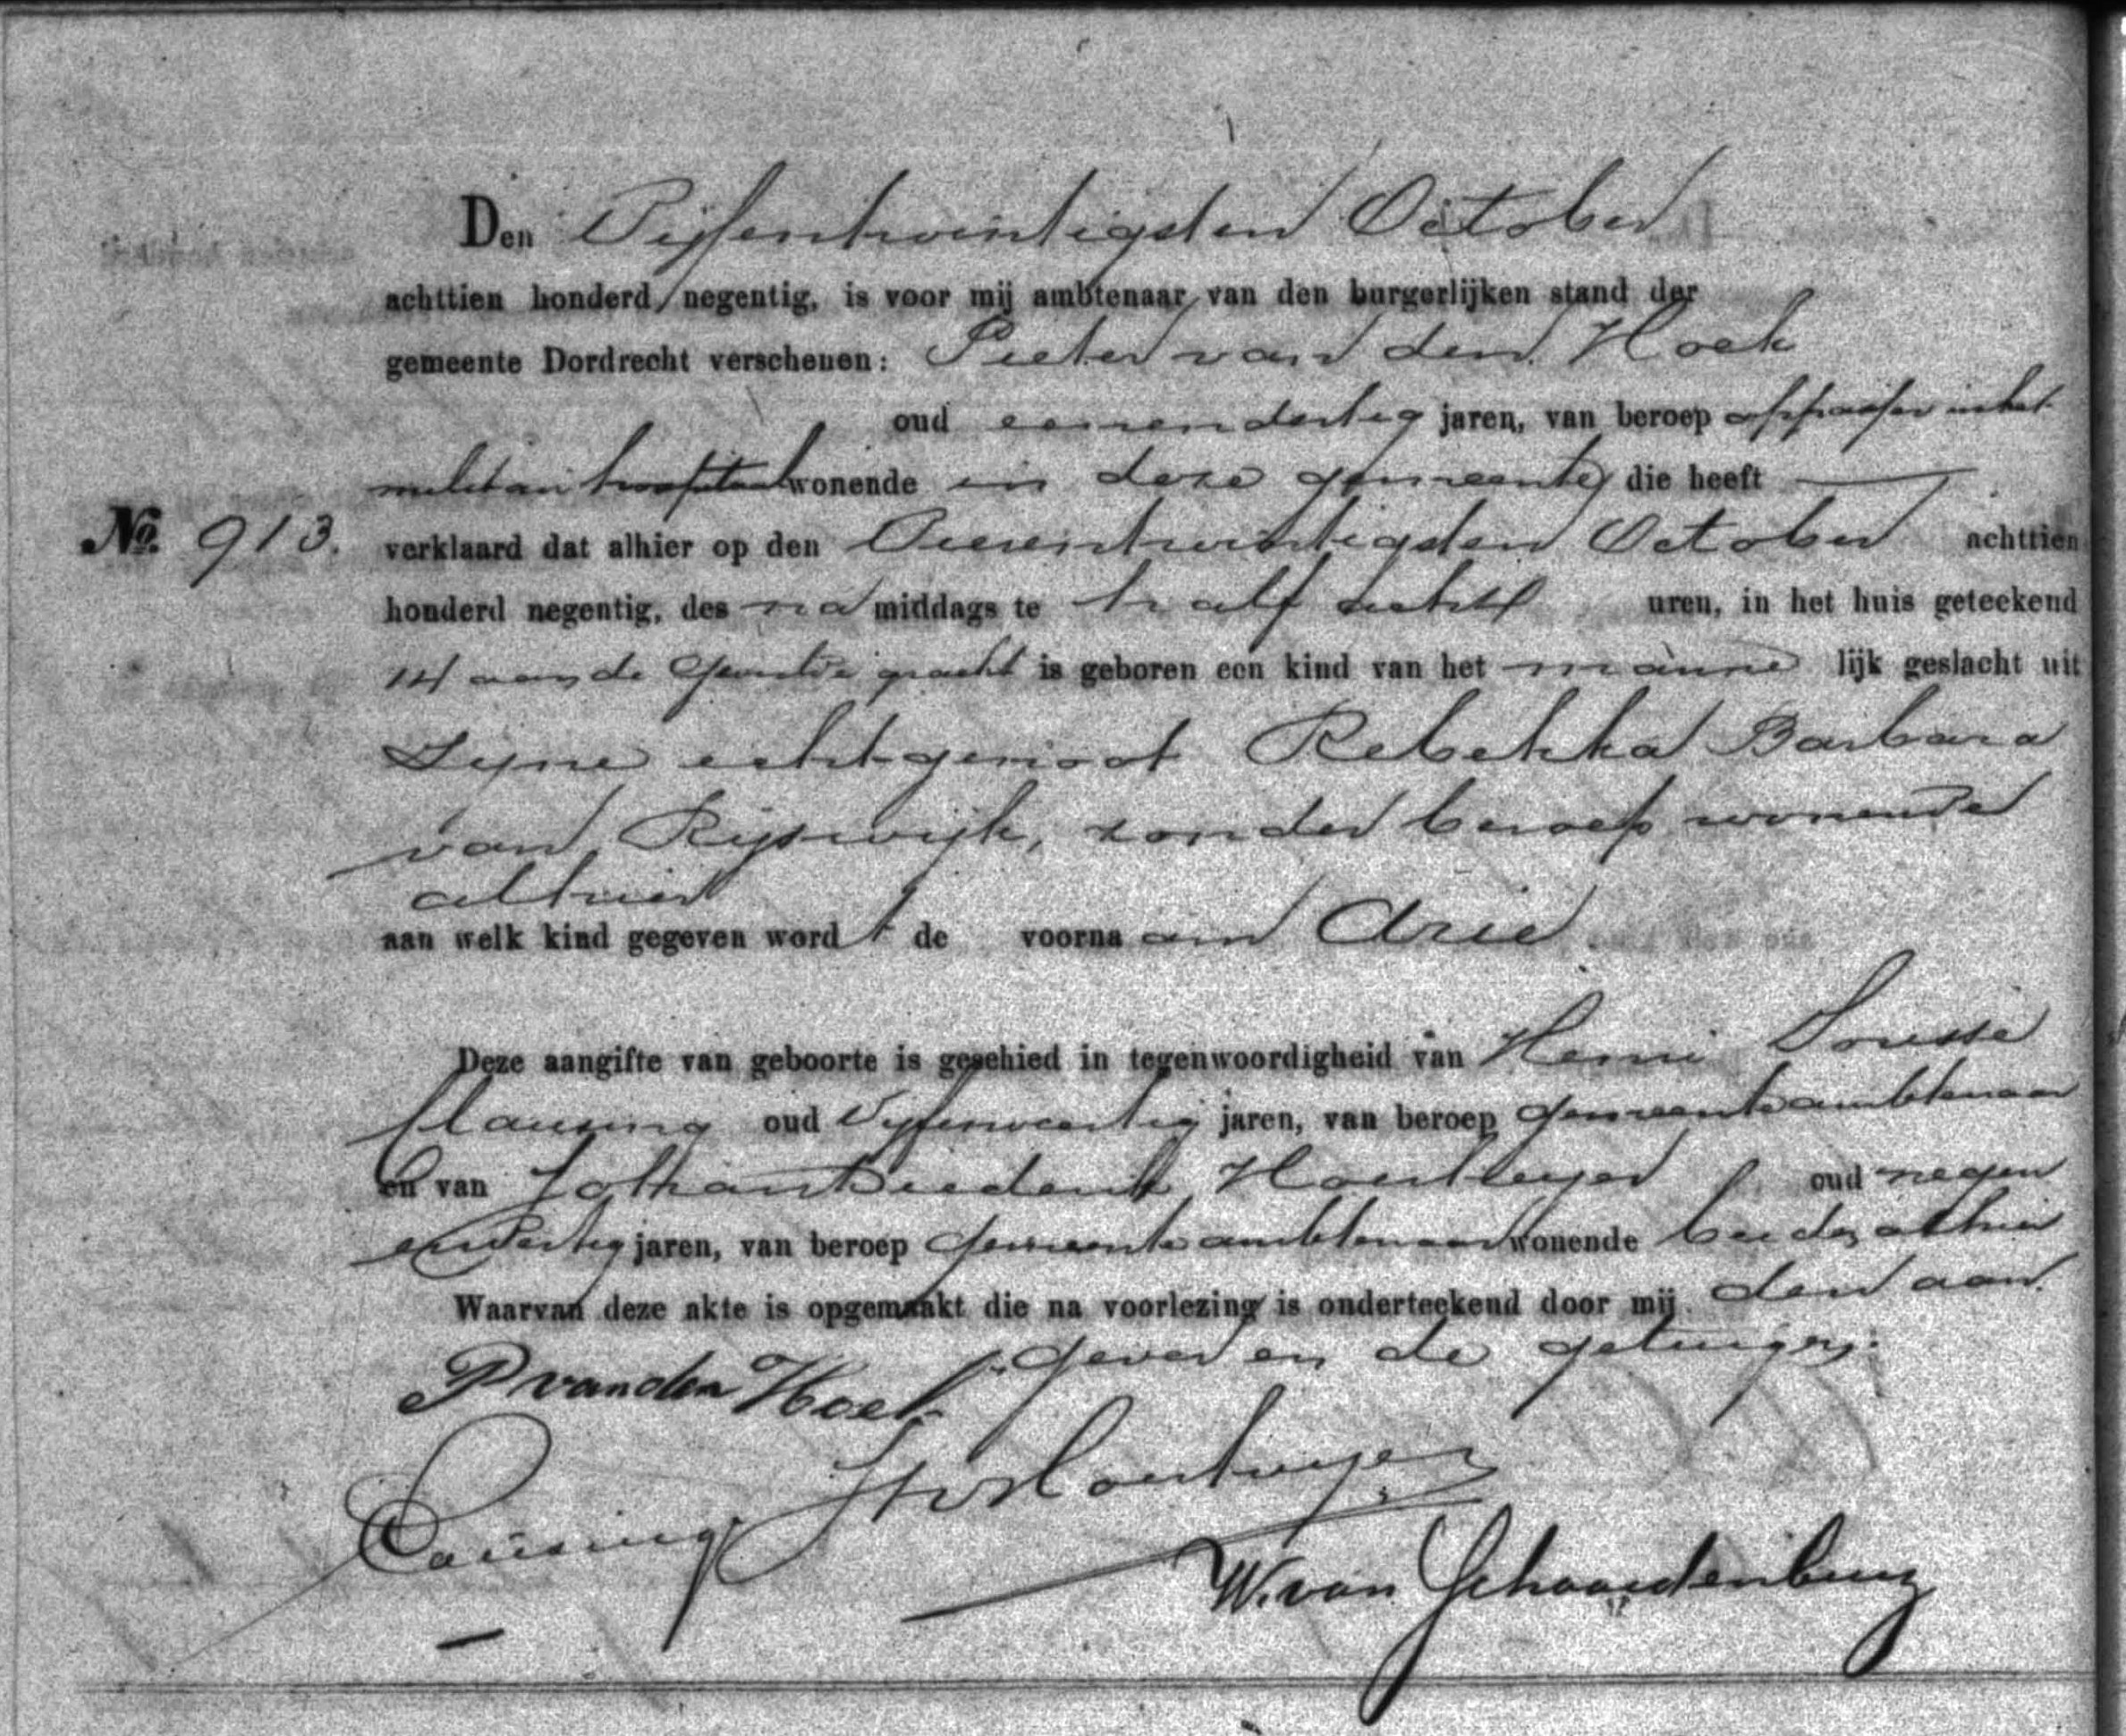 Den Vijfentwintigsten October
achttien honderd negentig, is voor mij ambtenaar van den burgerlijken stand der
gemeente Dordrecht verschenen: Pieter van den Hoek
oud eenendertig jaren, van beroep oppasser in het
militair hospitaal wonende in deze gemeente die heeft
No. 913. verklaard dat alhier op den Vierentwintigsten October achttien
honderd negentig, des na middags te half acht uren, in het huis geteekend
14 aan de gracht is geboren een kind van het manne lijk geslacht uit
Zijne echtgenoot Rebekka Barbara
van Rijswijk, zonder beroep wonende
alhier
aan welk kind gegeven word t de voorna am Arie
Deze aangifte van geboorte is geschied in tegenwoordigheid van Henri
Clausing oud Vijfenveertig jaren, van beroep gemeenteambtenaar
en van Johan Diederik oud negen
jaren, van beroep gemeenteambtenaar wonende beiden alhier
Waarvan deze akte is opgemaakt die na voorlezing is onderteekend door mij den aan
gever en de getuigen.
P van den Hoek
Clausing
W. van Schaardenburg